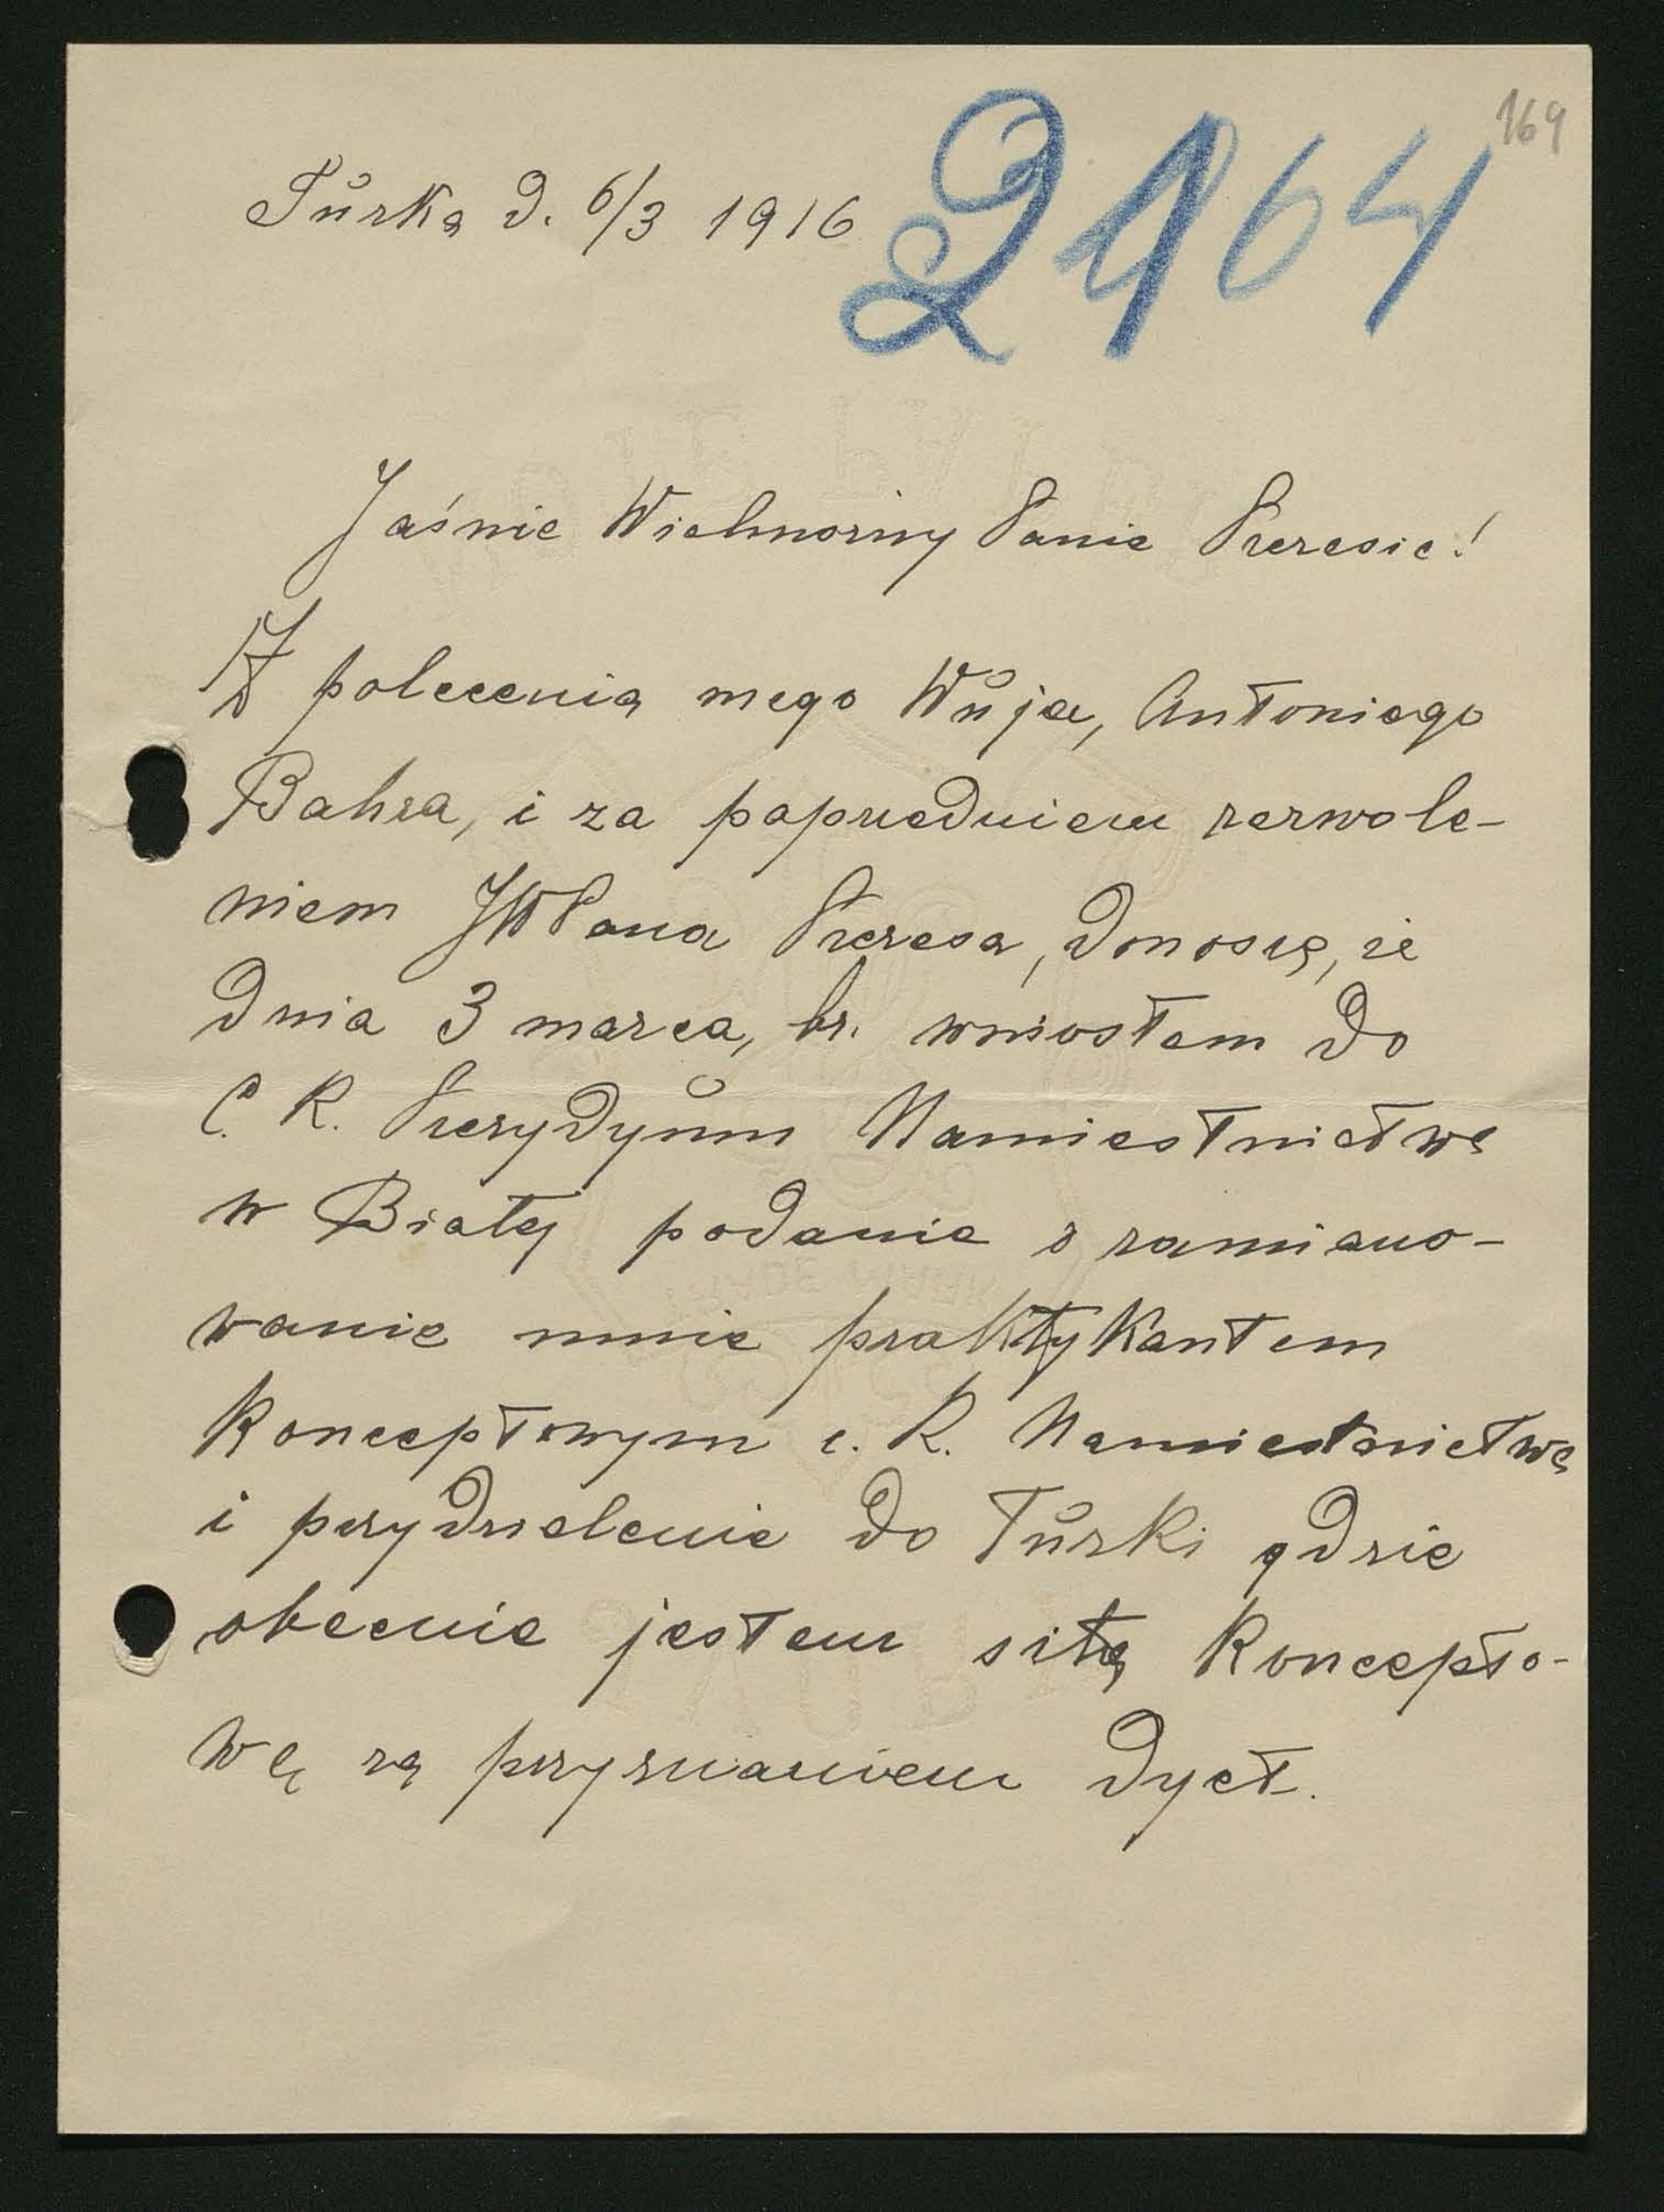 169
2164
Turka d. 6/3 1916
Jaśnie Wielmożny Panie Prezesie!
Z polecenia mego Wuja, Antoniego
Bahra, i za poprzedniem zezwole-
niem JWPana Prezesa, donoszę, że
dnia 3 marca, br. wniosłem do
C. K. Prezydyum Namiestnictwa
w Białej podanie o zamiano-
wanie mnie praktykantem
konceptowym c. K. Namiestnictwa
i przydzielenie do Turki gdzie
obecnie jestem siłą koncepto-
wą za przyznaniem dyet.